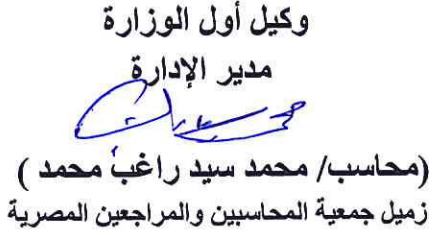 وكيل أول الوزارة
مدير الإدارة
(محاسب/ محمد سيد راغب محمد )
زميل جمعية المحاسبين والمراجعين المصرية